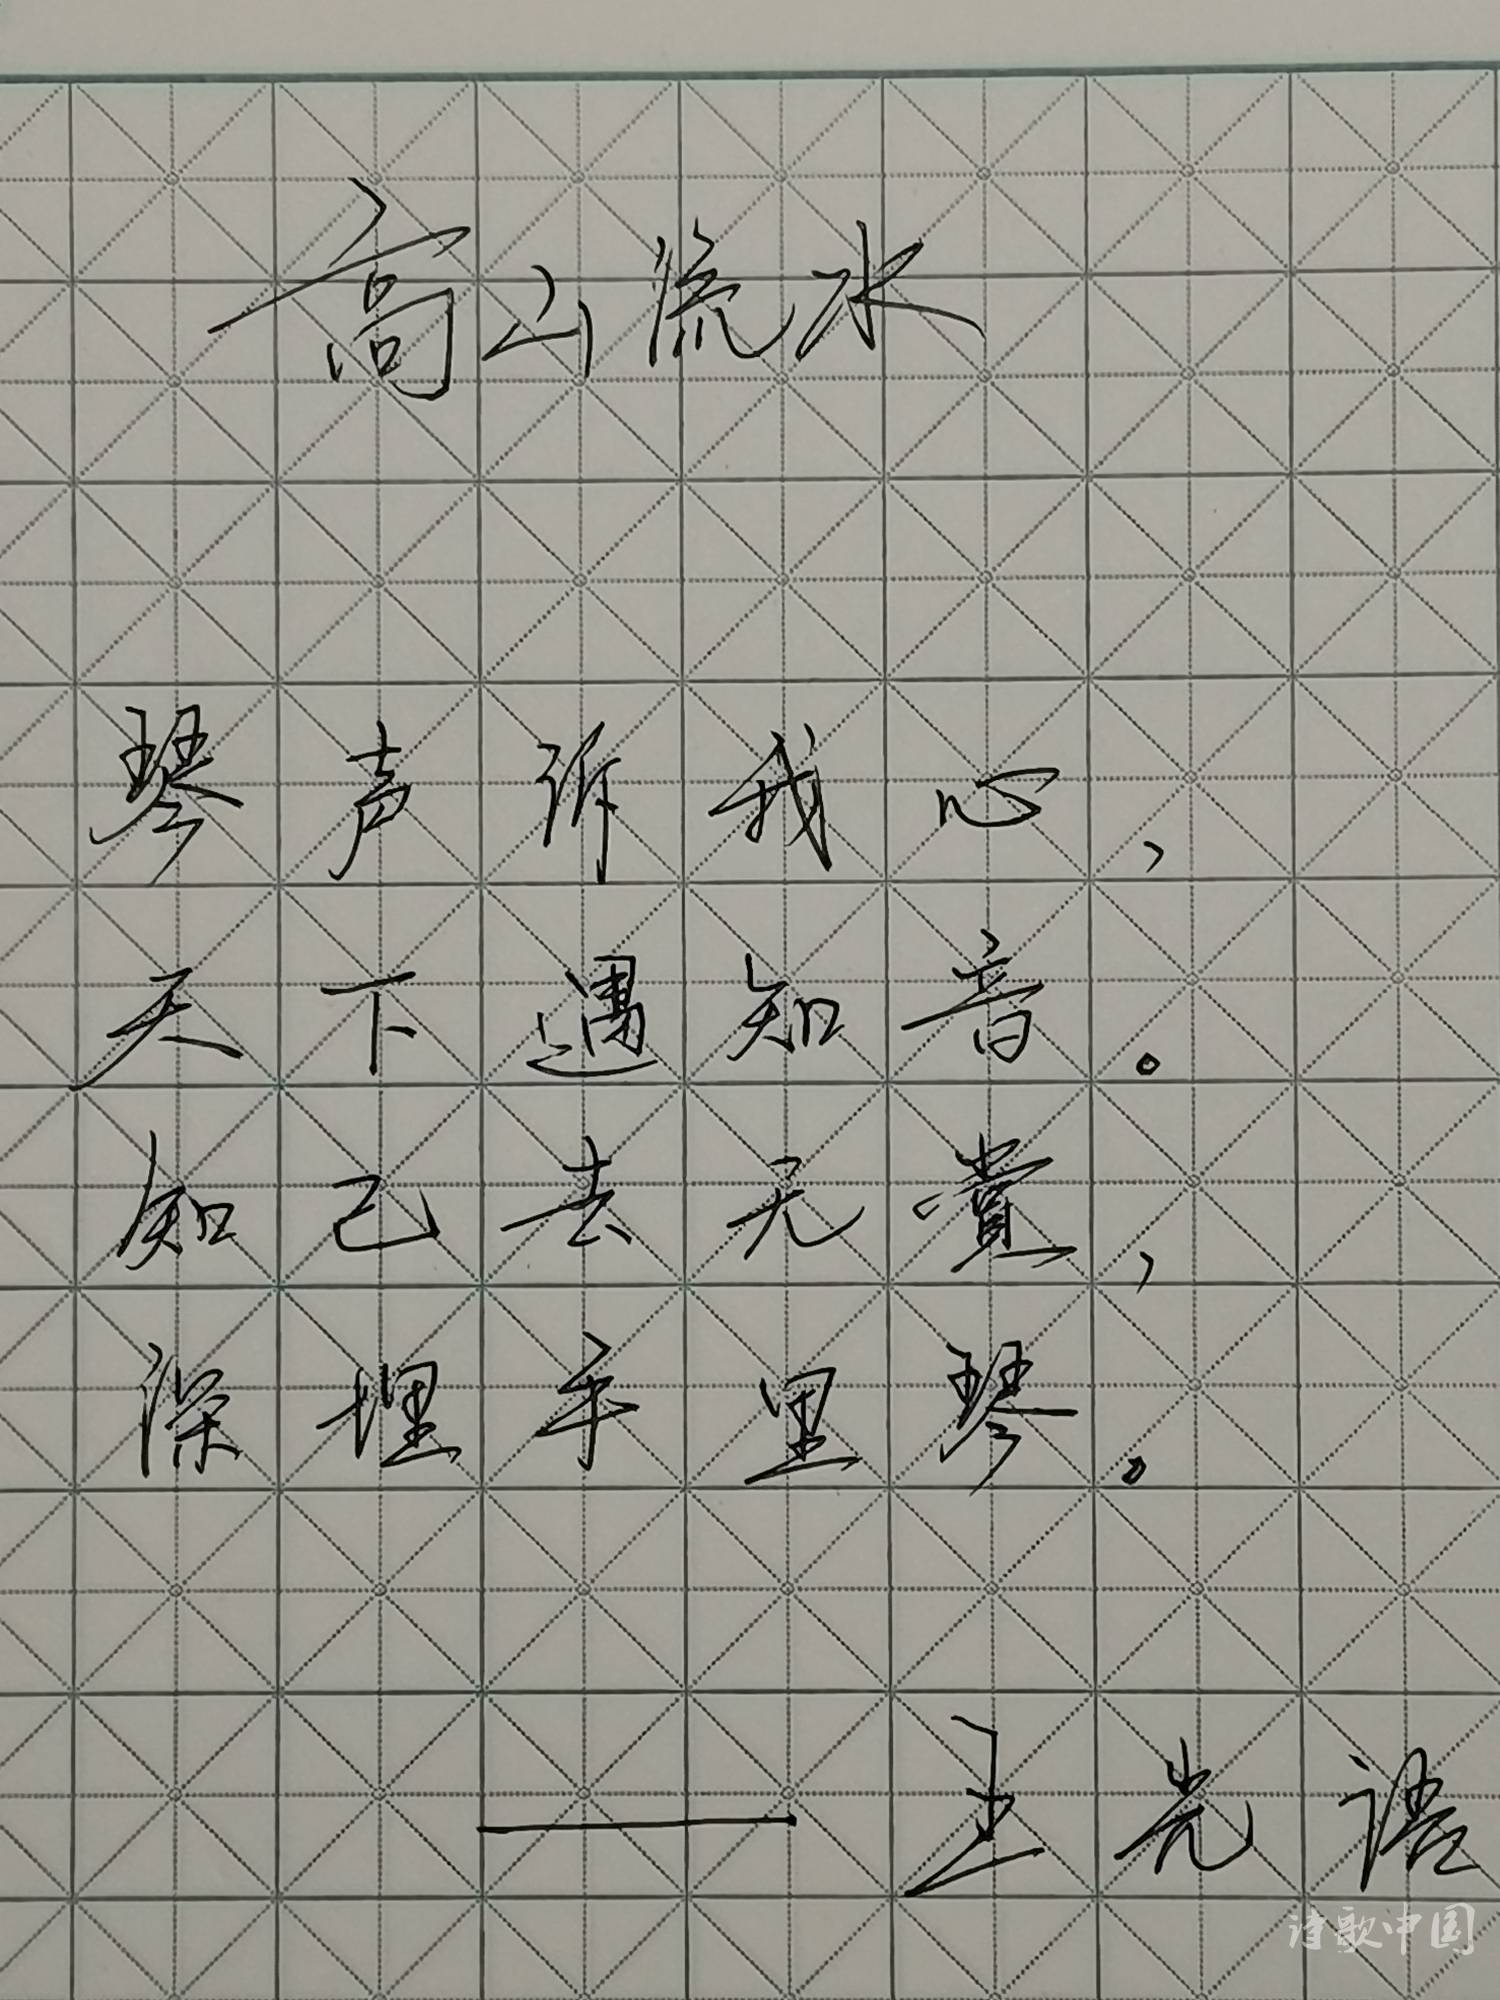 高山流水
琴声诉我心，
天下遇知音。
知己去无赏，
深埋手里琴。
——王光语
诗歌中国